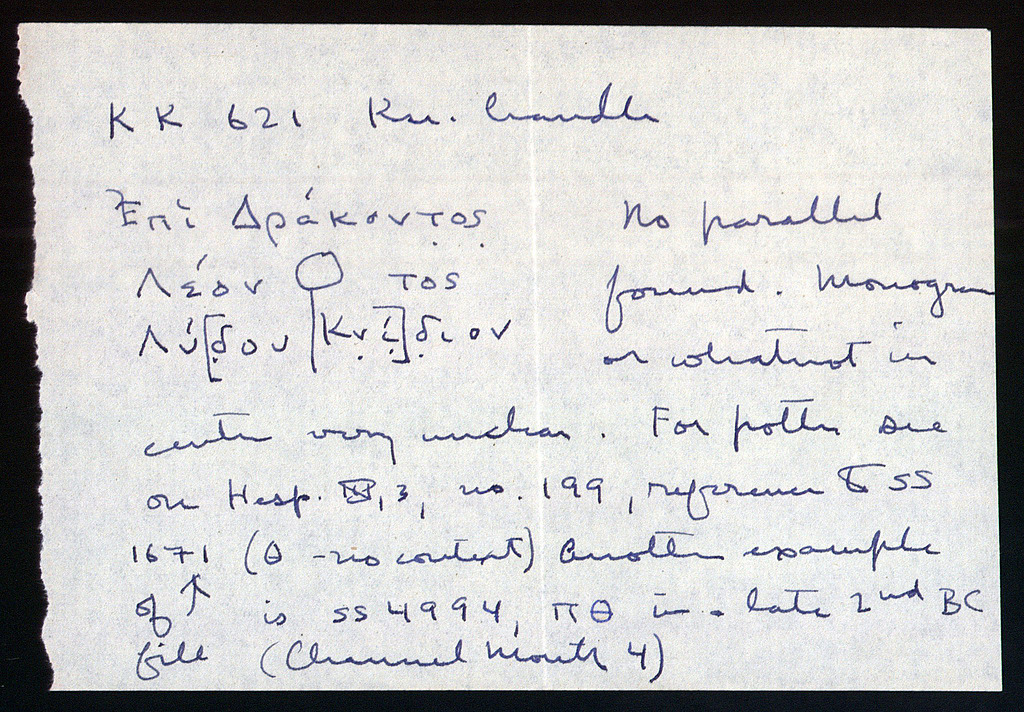 KK 621 Kn. handle
Ἐπὶ Δράκοντος No parallel
Λέον τος found. Monogram
Λύ[δου Κνί]διον or whatnot in
center very unclear. For potter see
on Hesp. III, 3, no. 199, reference to SS
1671 (Θ - no context) Another example
of ↑ is SS 4994, ΠΘ in a late 2nd BC
fill (Channel Mouth 4)